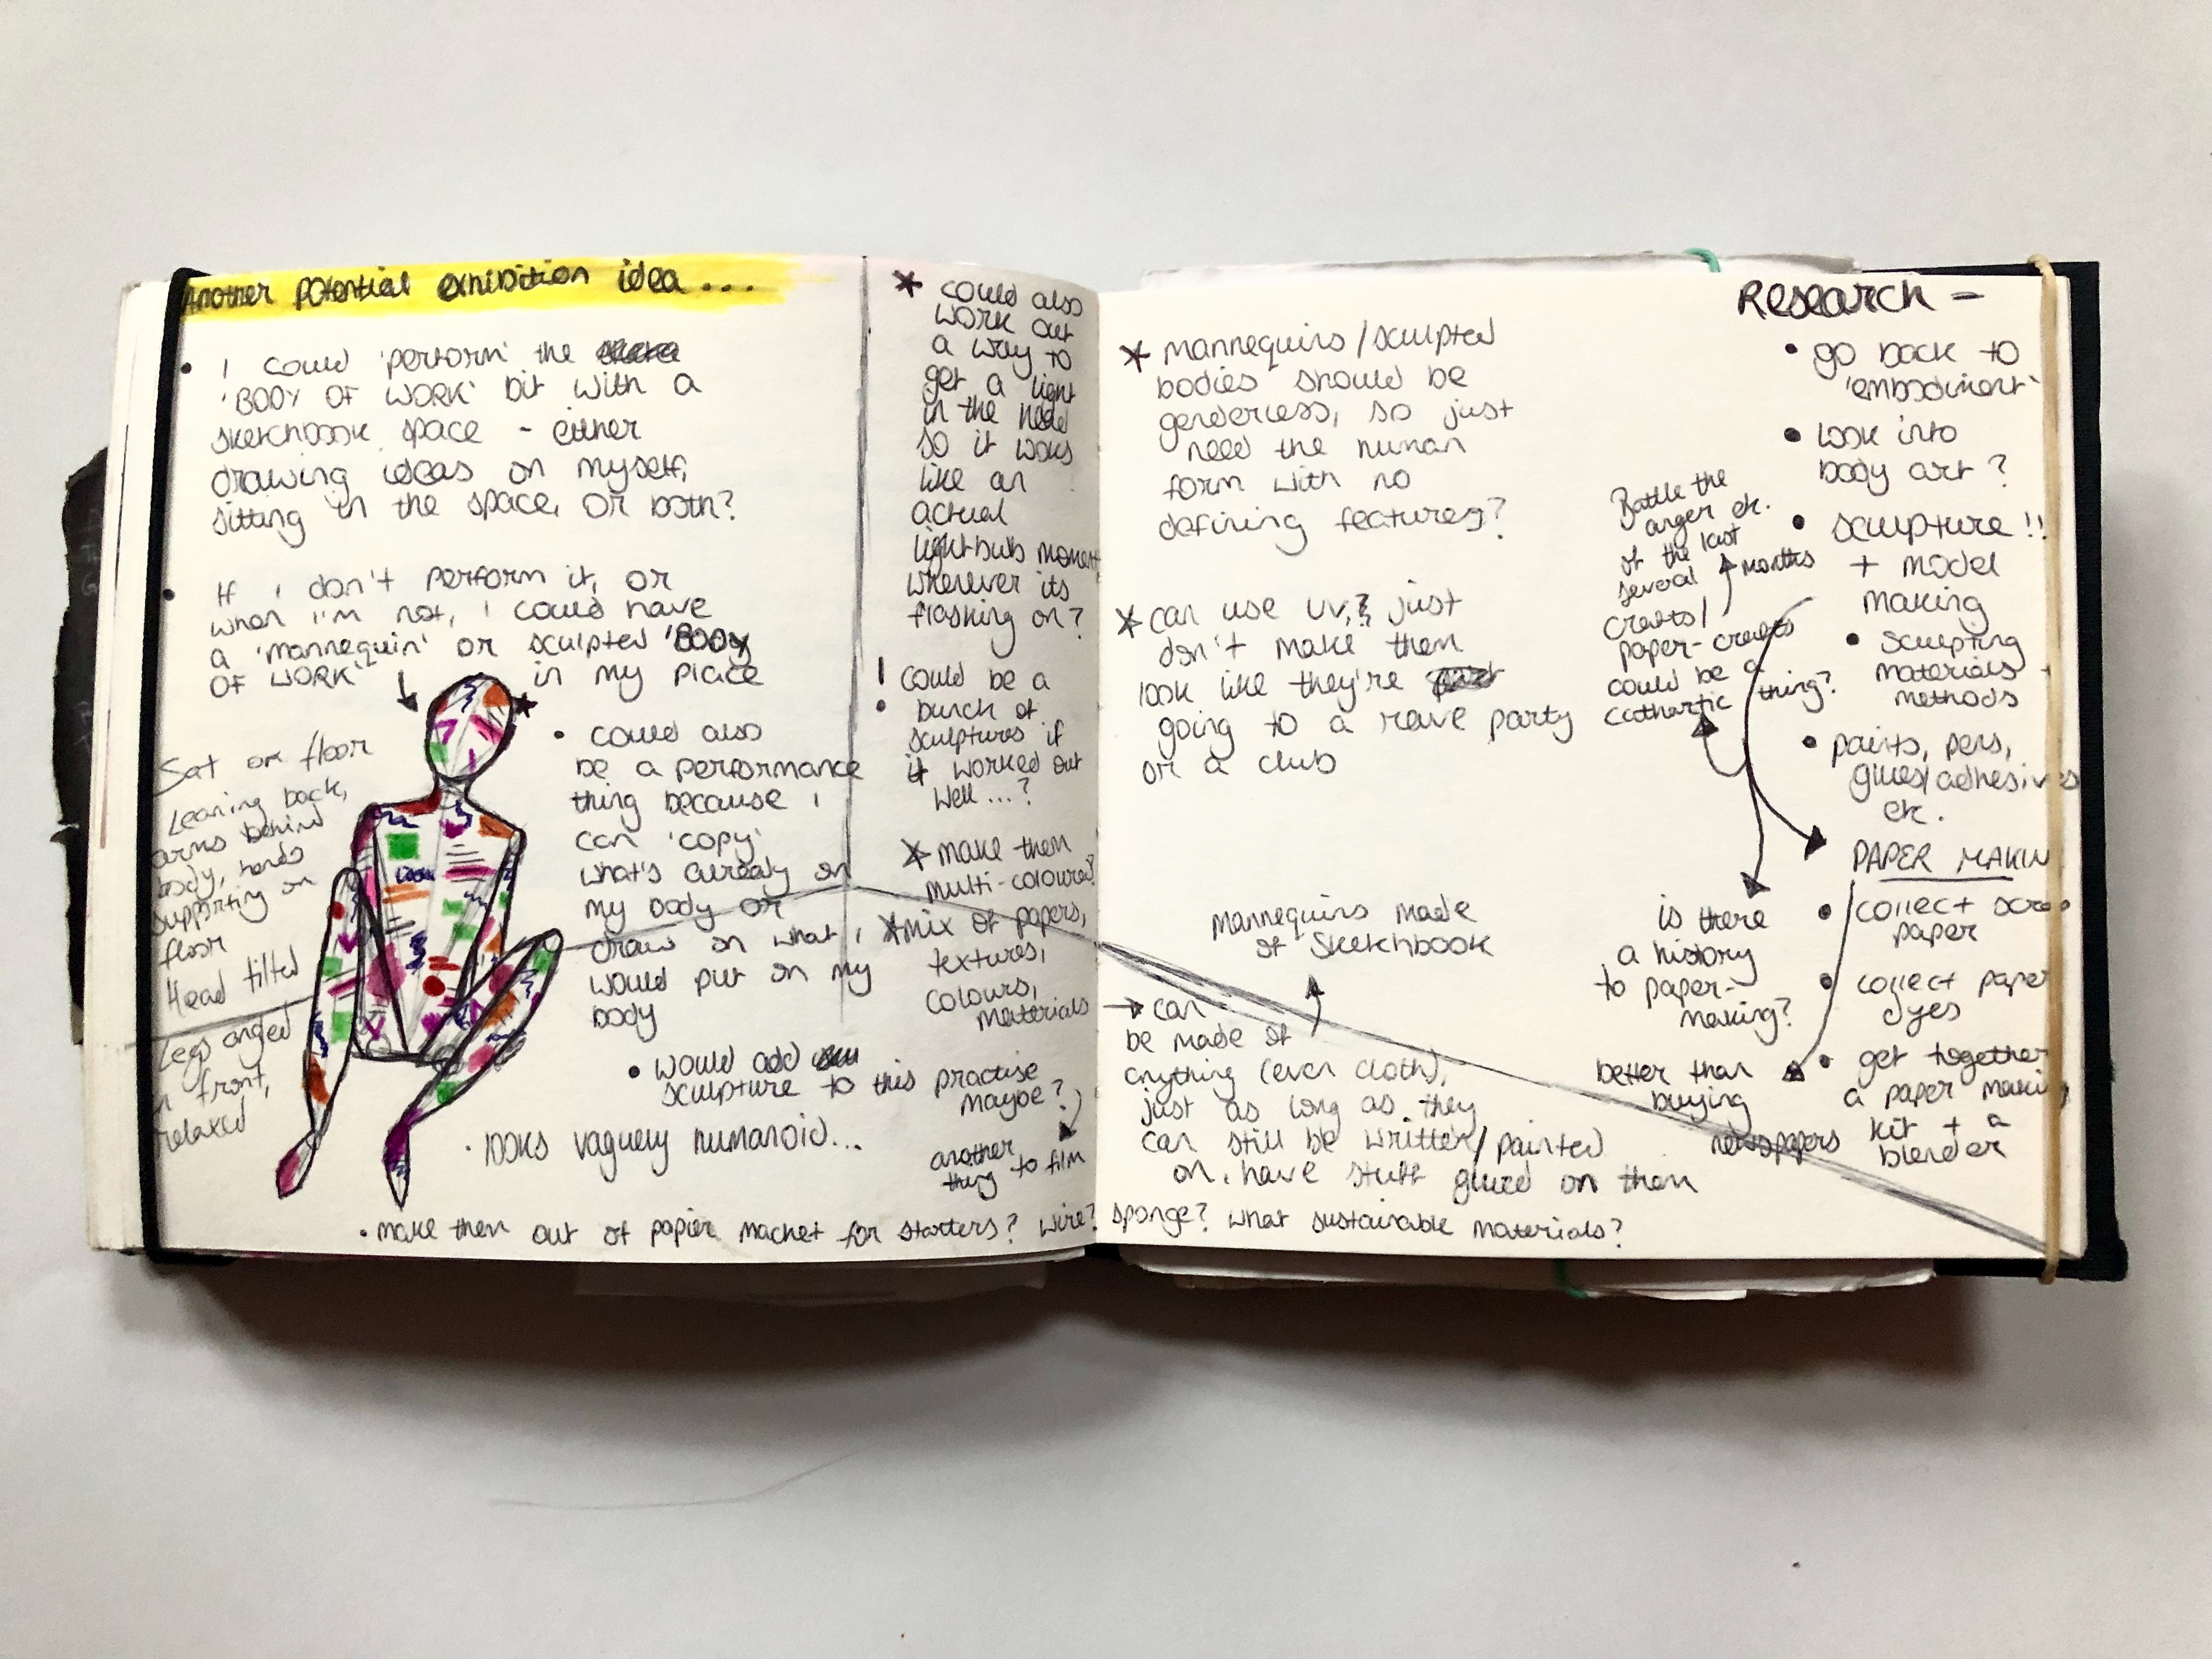 Another potential exhibition idea...
• I could 'perform' the
'BODY OF WORK' bit with a
sketchbook space - either
drawing ideas on myself,
sitting in the space, or both?
• If I don't perform it, or
when I'm not, I could have
a 'mannequin' or sculpted 'BODY
OF WORK' in my place
Sat on floor
Leaning back,
arms behind
body, hands
supporting on
floor
Head tilted
Legs angled
in front,
relaxed
• could also
be a performance
thing because I
can 'copy'
what's already on
my body or
draw on what I
would put on my
body
• would add
sculpture to this practise
maybe?
another
thing to film
• looks vaguely humanoid...
* could also
work out
a way to
get a light
in the head
so it looks
like an
actual
lightbulb moment
whenever its
flashing on?
! could be a
bunch of
sculptures if
it worked out
well...?
* make them
multi-coloured?
* mix of papers,
textures,
colours,
materials
• make them out of papier machet for starters? wire? sponge? what sustainable materials?
* mannequins/sculpted
bodies should be
genderless, so just
need the human
form with no
defining features?
* can use UV, just
don't make them
look like they're
going to a rave party
or a club
mannequins made
of sketchbook
→ can
be made of
anything (even cloth),
just as long as they
can still be written/painted
on, have stuff glued on them
Research -
• go back to
'embodiment'
• look into
body art?
• sculpture!!
+ model
making
• sculpting
materials +
methods
• paints, pens,
glues/adhesives
etc.
PAPER MAKIN
• collect scrap
paper
• collect paper
dyes
• get together
a paper making
kit + a
blender
Battle the
anger etc.
of the last
several months
crafts/
paper-crafts
could be a
cathartic thing?
is there
a history
to paper-
making?
better than
buying
newspapers